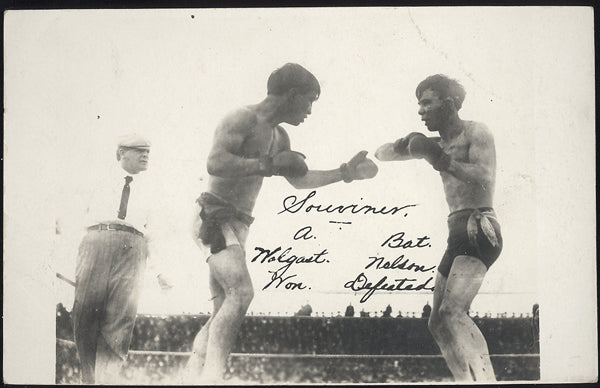 Souviner.
A. Wolgast. Won.
Bat. Nelson. Defeated.